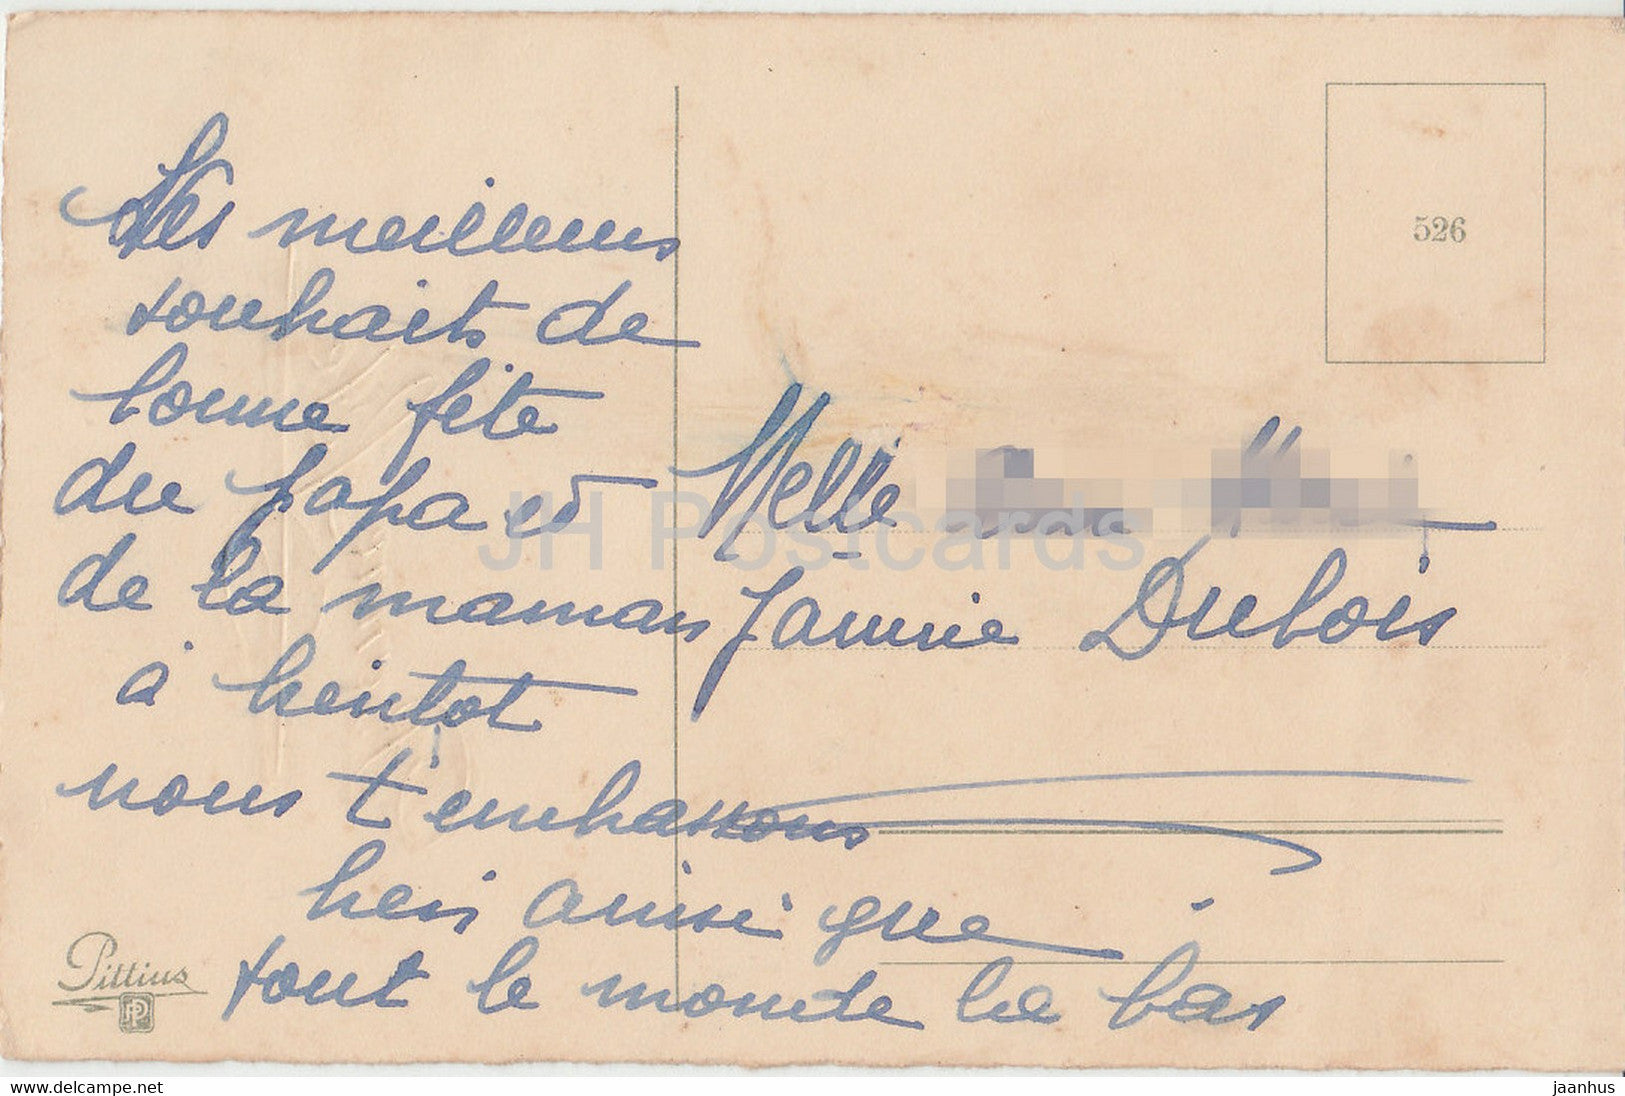 Les meilleurs
souhaits de
bonne fête
du papa et
de la maman
à bientot
nous t'embrassons
bien ainsi que
tout le monde là bas
Melle
Jannie Dubois
526
Pittius
PP
JH Postcards
www.delcampe.net
jaanhus